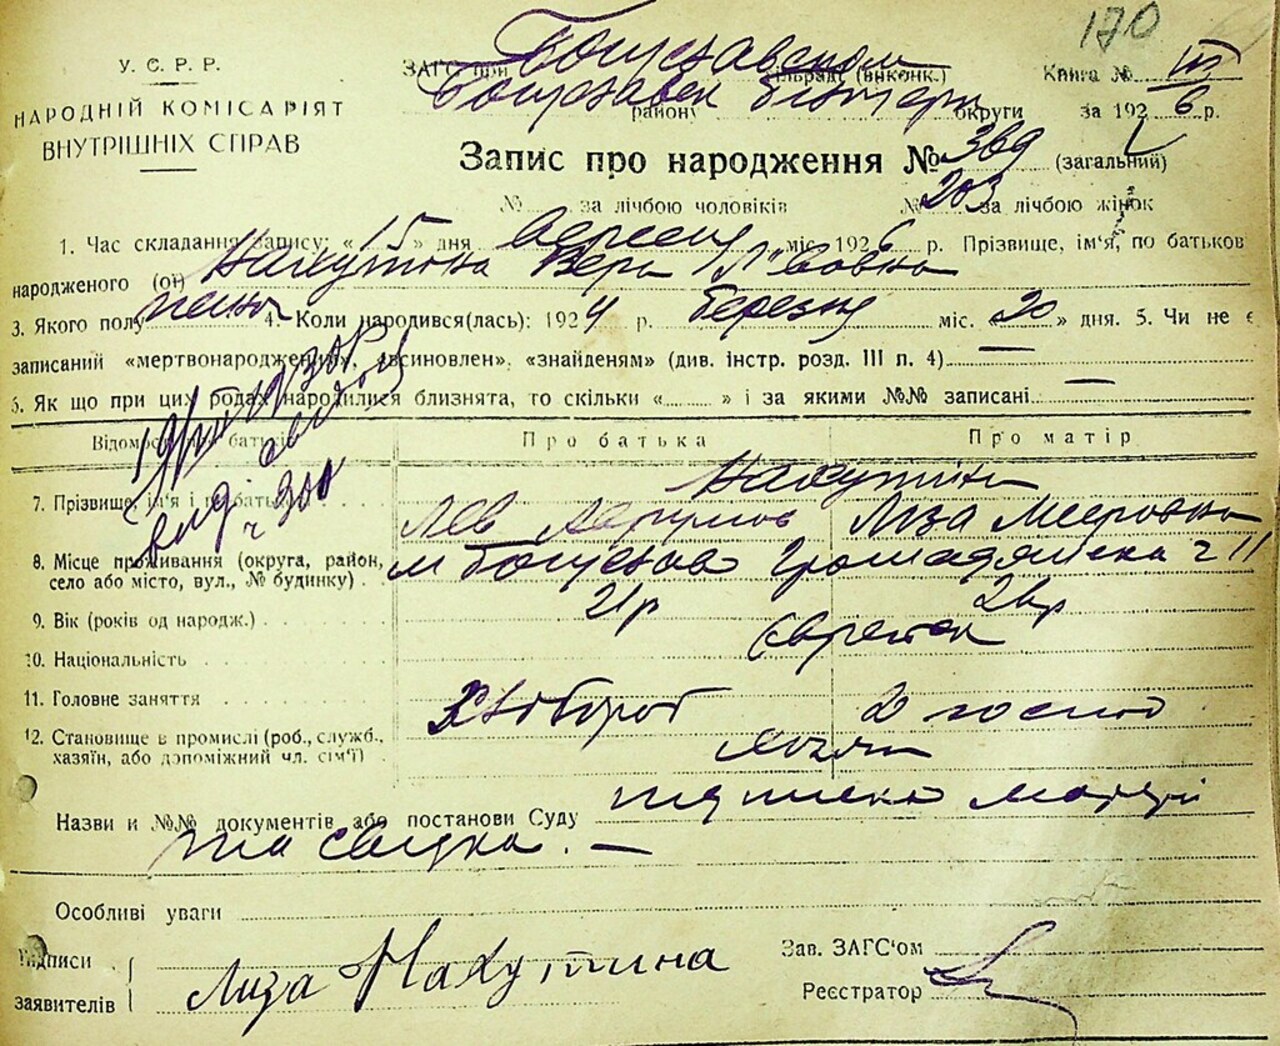 170
У. С. Р. Р.
НАРОДНІЙ КОМІСАРІЯТ
ВНУТРІШНІХ СПРАВ
ЗАГС при Богуславском сільраді (виконк.) Книга № III
Богуславск району округи за 1926 р.
Запис про народження № 369 (загальний)
№ за лічбою чоловіків № 203 за лічбою жінок
1. Час складання запису: «15» дня вересня міс. 1926 р. Прізвище, ім'я, по батьков
народженого (ої) Нахутина Вера Львовна
3. Якого полу жіноч 4. Коли народився(лась): 1924 р. березня міс. «20» дня. 5. Чи не є
записаний «мертвонароджений», «всиновлен», «знайденям» (див. інстр. розд. III п. 4) —
6. Як що при цих родах народилися близнята, то скільки « » і за якими №№ записані —
Відомости про батьків Про батька Про матір
Нахутіни
7. Прізвище, ім'я і по батьк. Лев Лиза Мееровна
8. Місце проживання (округа, район, м Богуслав Громадянска ч 11
село або місто, вул., № будинку)
9. Вік (років од народж.) 21р
10. Національність Євреиск
11. Головне заняття Хлібороб
12. Становище в промислі (роб., служб., хазяїн, або допоміжний чл. сім'ї)
Назви и №№ документів або постанови Суду матері
та свідка. —
Особливі уваги
Підписи Зав. ЗАГС'ом
заявителів Лиза Нахутина
Реєстратор